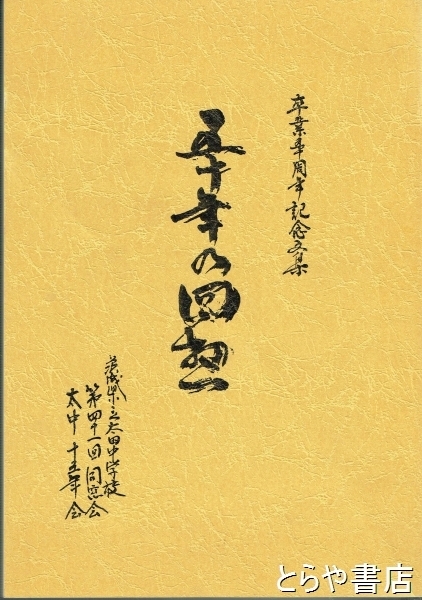 卒業五十周年記念文集
五十年の回想
茨城県立太田中学校
第四十一回同窓会
太中十五年会
とらや書店